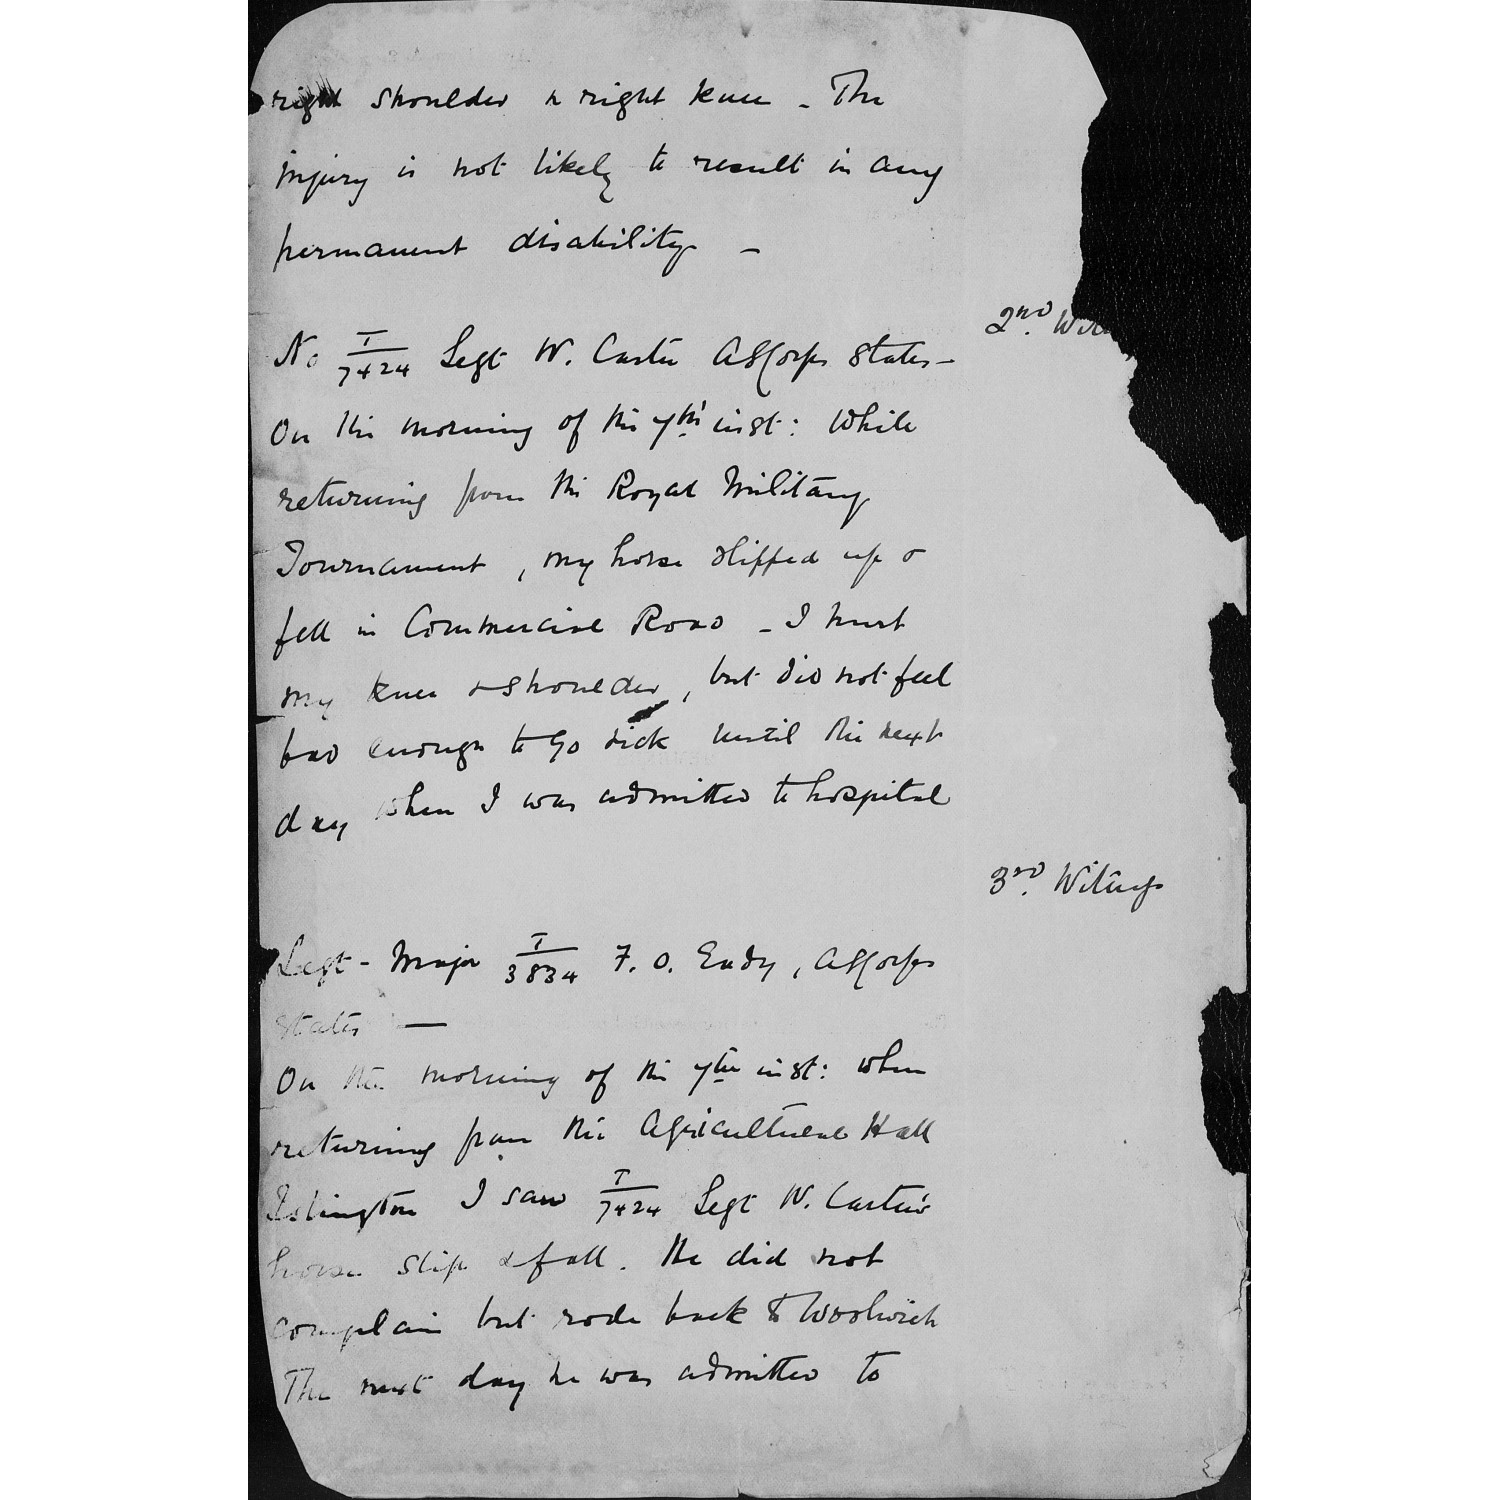 right shoulder & right knee - The
injury is not likely to result in any
permanent disability -
2nd. Wit
No T/7424 Sergt W. Carter ASCorps states -
On the morning of the 7th inst: while
returning from the Royal Military
Tournament, my horse slipped up &
fell in Commercial Road - I hurt
my knee & shoulder, but did not feel
bad enough to go sick until the next
day when I was admitted to hospital
3rd. Witness
Sergt - Major T/3834 F. O. Eady, ASCorps
states —
On the morning of the 7th inst: when
returning from the Agricultural Hall
Islington I saw T/7424 Sergt W. Carter's
horse slip & fall. He did not
complain but rode back to Woolwich
The next day he was admitted to